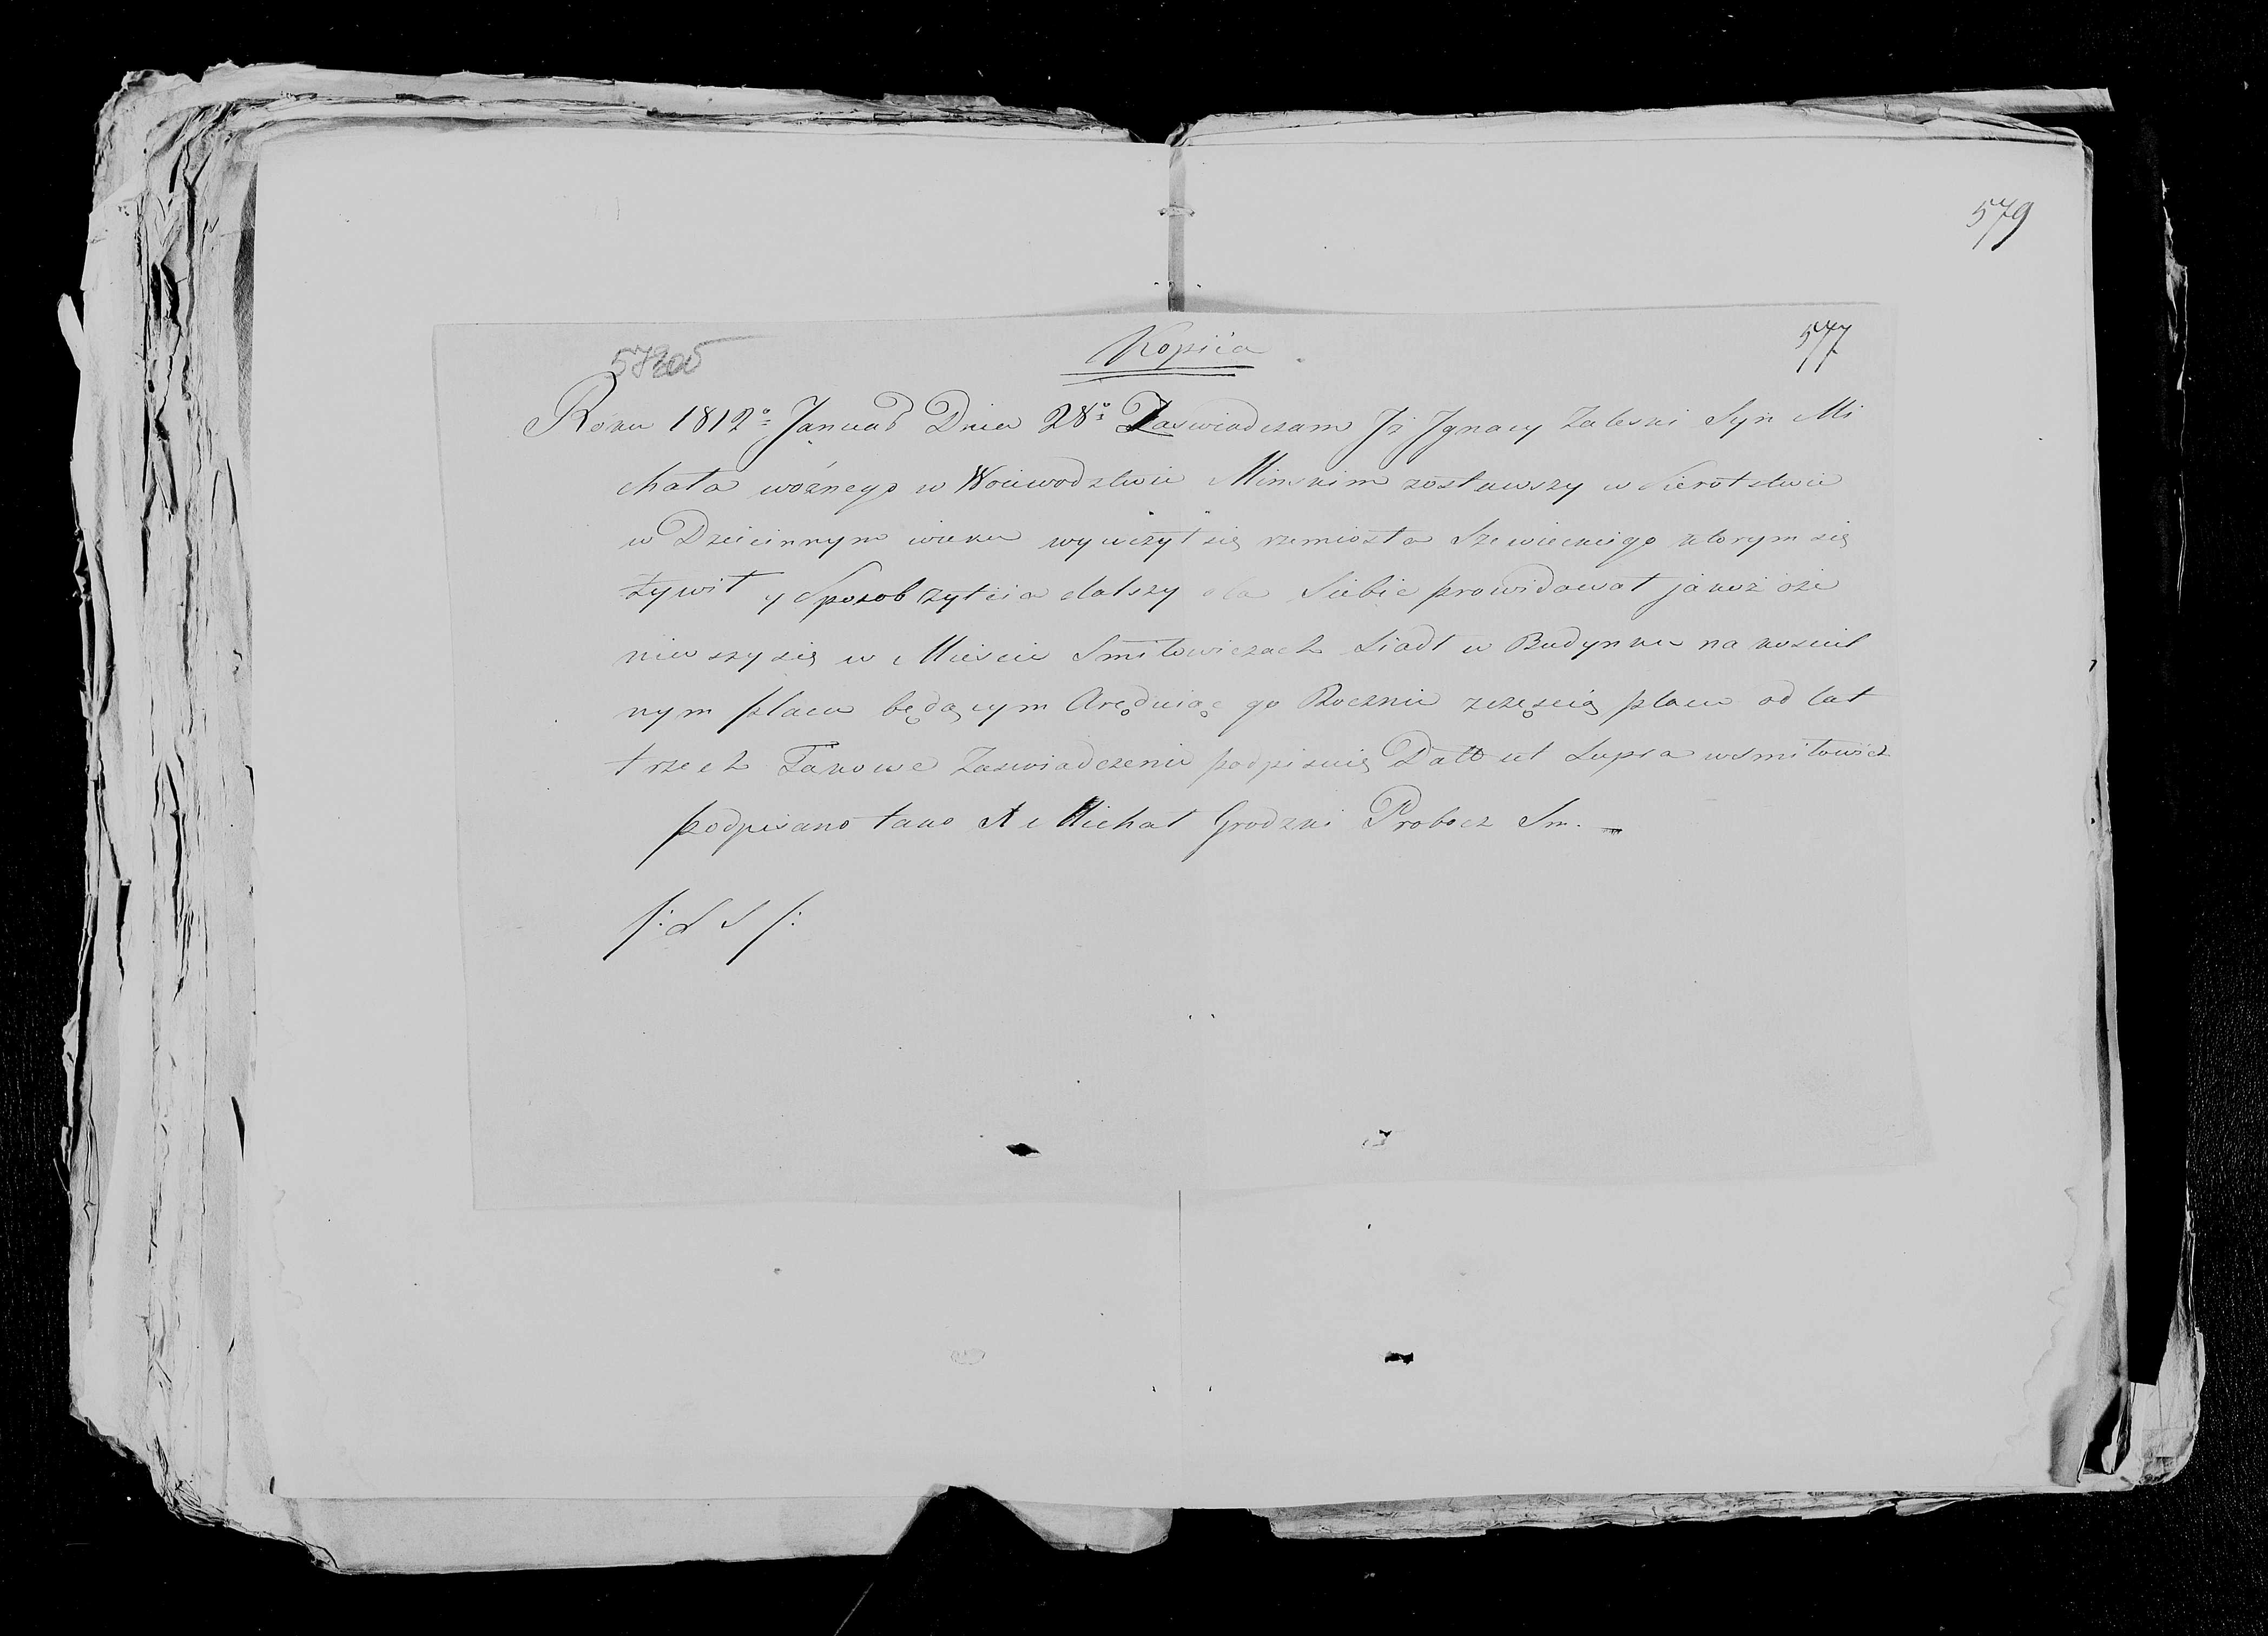 579
Kopiia
577
Roku 1812º Januar Dnia 28º Zaswiadczam Jż Jgnacy Zaleski Syn Mi
chała woznego w Woiewodztwie Minskim zostawszy w Sierotstwie
w Dzieicinnym wieku wyuczył się rzemiosła Szewieckiego ktorym się
żywił y Sposob żytcia dalszy dla Siebie prowidował jakoż oże
niwszy się w Miescie Smiłowiczach Siadł w Budynku na koscieł
nym placu będącym Arędując go Rocznie zczęscią placu od lat
trzech Takowe Zaswiadczenie podpisuię Datt ut Supra w Smiłowicz
podpisano tako X Michał Grodzki Probocz Sm.
/: L S /: